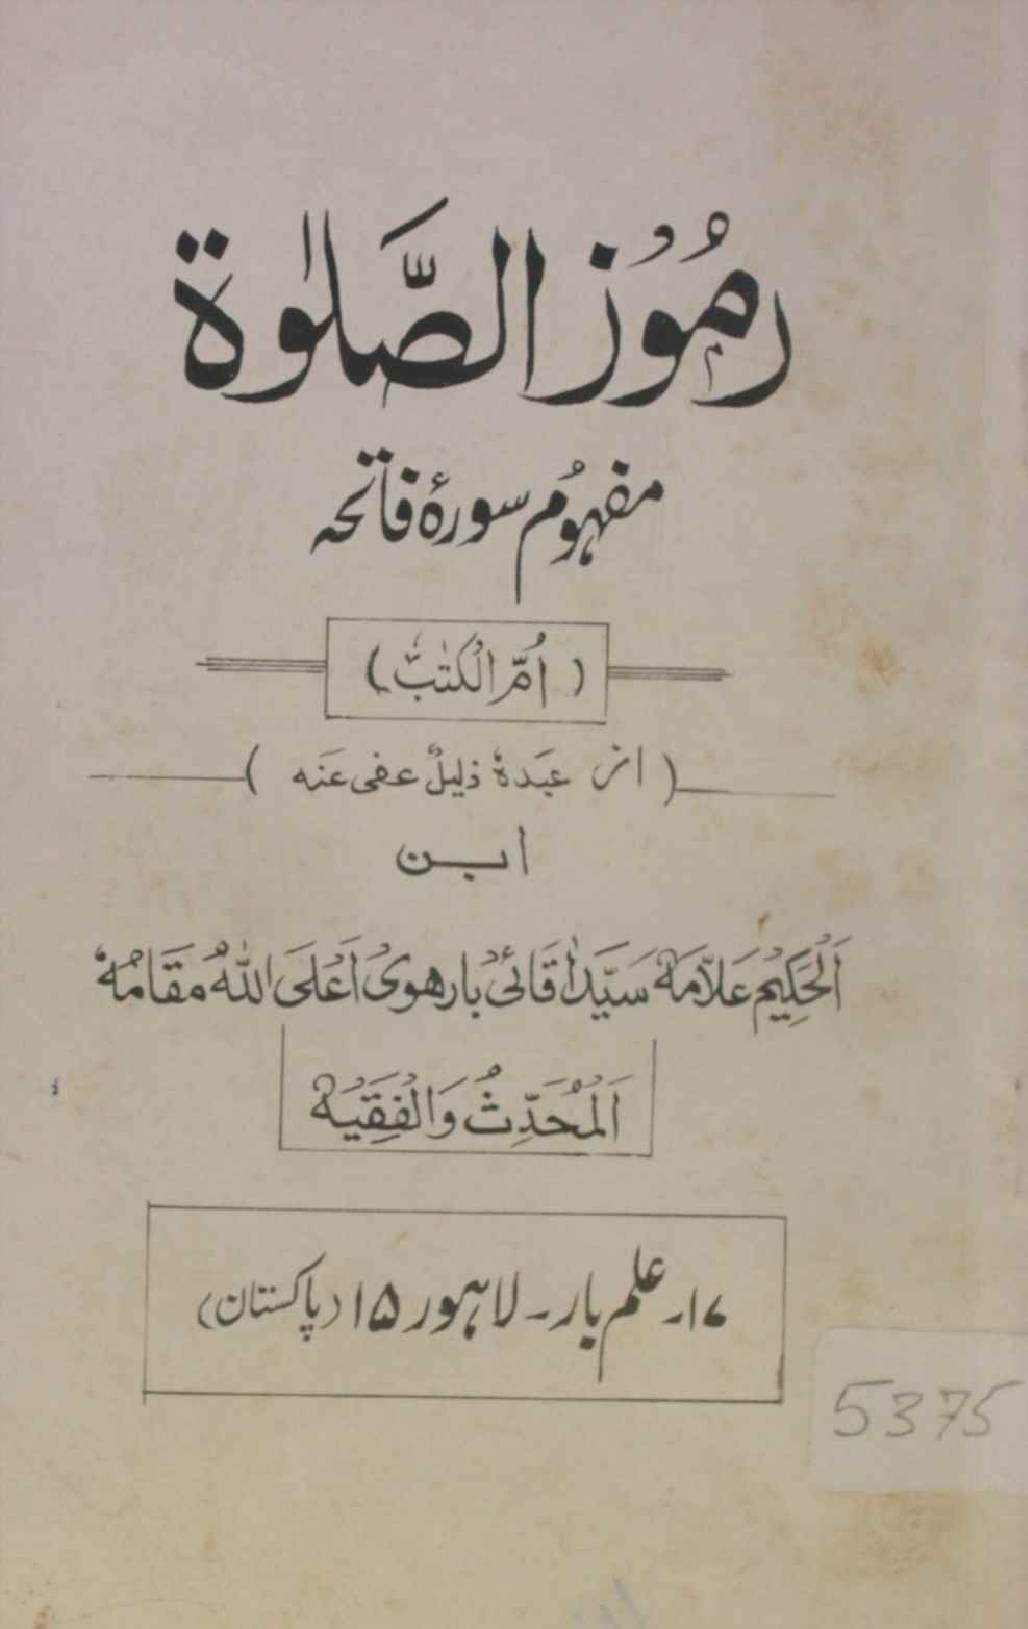 رمُوُز الصَّلوٰۃ
مفہوُم سورۂ فاتحہ
( اُمّ الکتٰبؓ )
( از عبدہٗ ذلیلٌ عفی عَنہ )
ابن
اَلْحَکِیْم عَلاّمَہ سَیَّد آقَائیْ بارھوی اَعْلَی اللّٰہُ مَقَامُہٗ
اَلْمُحَدِّثُ وَالْفَقِیْہ
۱۷۔ علم بار۔ لاہور ۱۵ (پاکستان)
5375